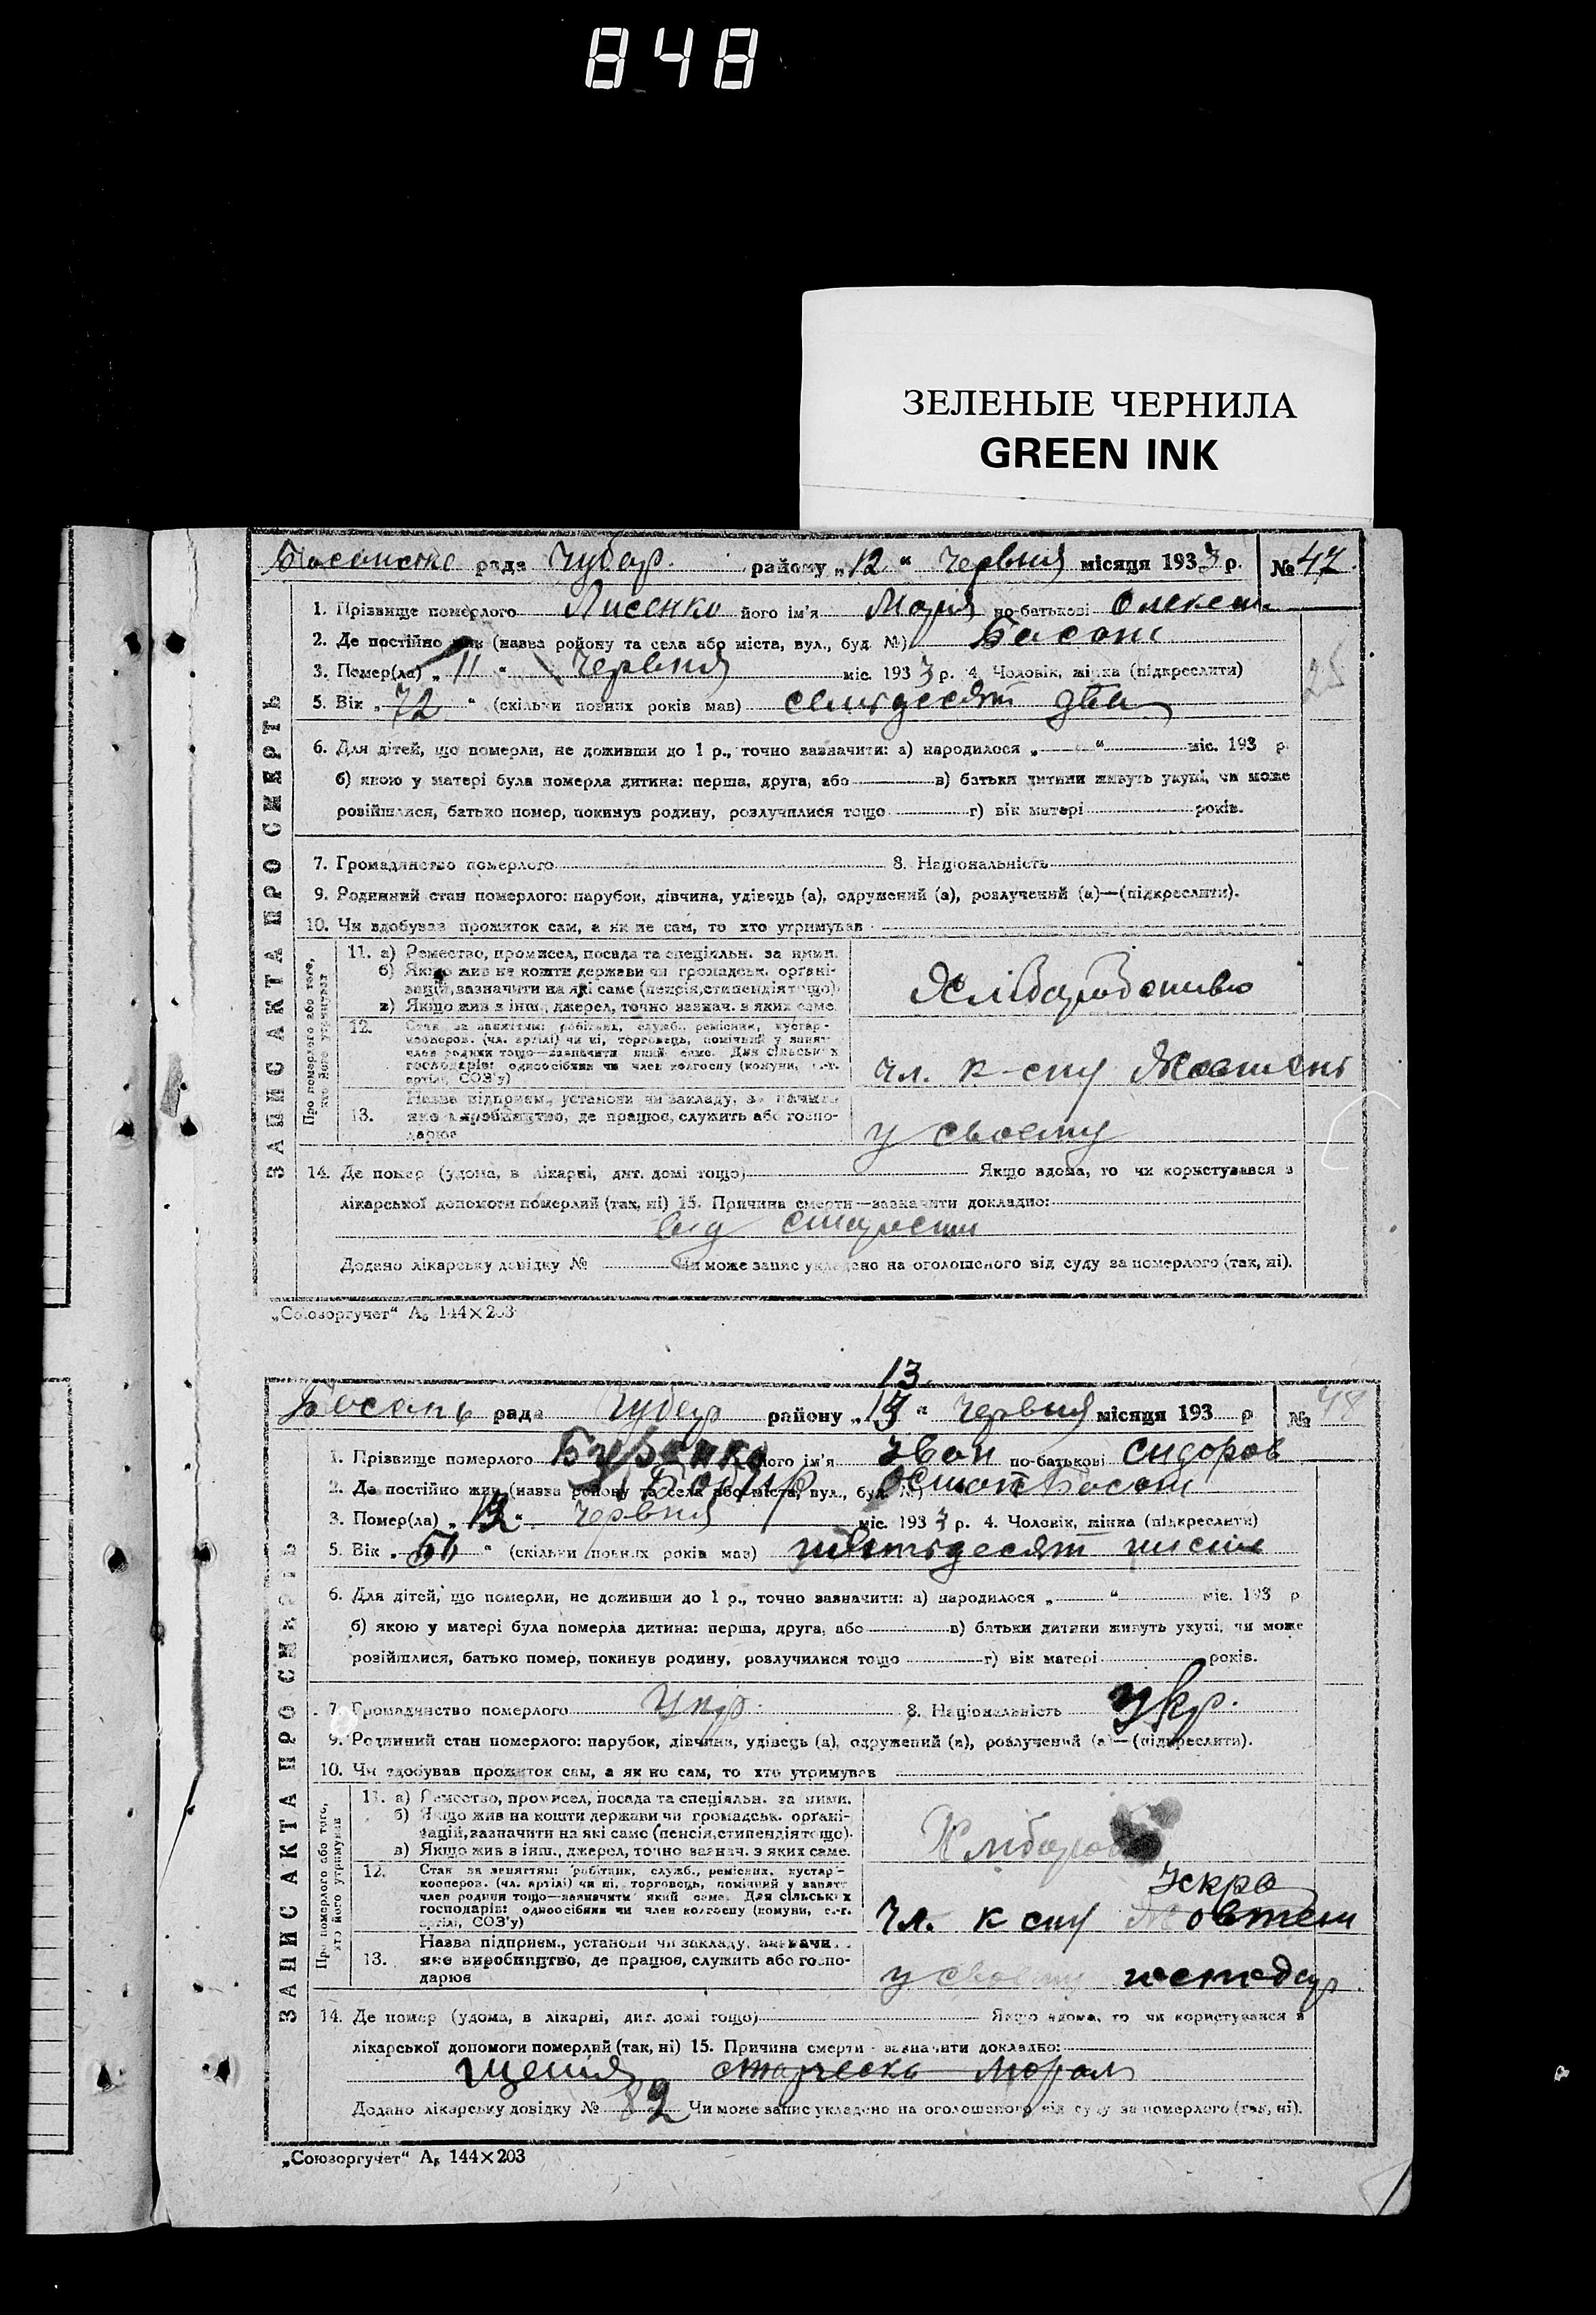 848
ЗЕЛЕНЫЕ ЧЕРНИЛА
GREEN INK
рада Чубар. району „12“ червня місяця 1933 р. № 47.
1. Прізвище померлого Лисенко його ім'я Марія по-батькові Олексеи
2. Де постійно жив (назва району та села або міста, вул., буд. №) Басань
3. Помер(ла) „11“ червня міс. 1933 р. 4. Чоловік, жінка (підкреслити)
5. Вік „72“ (скільки повних років мав) сімдесят два
6. Для дітей, що померли, не доживши до 1 р., точно зазначити: а) народилося „ “ міс. 193 р.
б) якою у матері була померла дитина: перша, друга, або в) батьки дитини живуть укупі, чи може
розійшлися, батько помер, покинув родину, розлучилися тощо г) вік матері років.
7. Громадянство померлого 8. Національність
9. Родинний стан померлого: парубок, дівчина, удівець (а), одружений (а), розлучений (а)—(підкреслити).
10. Чи здобував прожиток сам, а як не сам, то хто утримував
ЗАПИС АКТА ПРО СМЕРТЬ
Про померлого або того, хто його утримував
11. а) Ремество, промисел, посада та спеціяльн. за ними.
б) Якщо жив на кошти держави чи громадськ. органі-
зацій, зазначити на які саме (пенсія, стипендія тощо).
в) Якщо жив з інш. джерел, точно зазнач. з яких саме.
12. Стан за заняттям: робітник, служб., ремісник, кустар-
кооперов. (чл. артілі) чи ні, торговець, помічний у занят.
член родини тощо—зазначити який саме. Для сільських
господарів: одноосібник чи член колгоспу (комуни, с.-г.
артілі, СОЗ'у)
чл. к-спу Жовтень
13. Назва підприєм., установи чи закладу, зазначити
яке виробництво, де працює, служить або госпо-
дарює
у своему
14. Де помер (удома, в лікарні, дит. домі тощо) Якщо вдома, то чи користувався з
лікарської допомоги померлий (так, ні) 15. Причина смерти—зазначити докладно:
від старости
Додано лікарську довідку № Чи може запис укладено на оголошеного від суду за померлого (так, ні).
„Союзоргучет“ А₅ 144×203
13
Басань рада Чубар району „ “ червня місяця 193 р № 48
1. Прізвище померлого його ім'я Іван по-батькові Сидоров
2. Де постійно жив (назва району та села або міста, вул., буд. №) Басань
3. Помер(ла) „12“ червня міс. 1933 р. 4. Чоловік, жінка (підкреслити)
5. Вік „ “ (скільки повних років мав)
6. Для дітей, що померли, не доживши до 1 р., точно зазначити: а) народилося „ “ міс. 193 р
б) якою у матері була померла дитина: перша, друга, або в) батьки дитини живуть укупі, чи може
розійшлися, батько помер, покинув родину, розлучилися тощо г) вік матері років.
7. Громадянство померлого Укр. 8. Національність Укр.
9. Родинний стан померлого: парубок, дівчина, удівець (а), одружений (а), розлучений (а)—(підкреслити).
10. Чи здобував прожиток сам, а як не сам, то хто утримував
ЗАПИС АКТА ПРО СМЕРТЬ
Про померлого або того, хто його утримував
11. а) Ремество, промисел, посада та спеціяльн. за ними.
б) Якщо жив на кошти держави чи громадськ. органі-
зацій, зазначити на які саме (пенсія, стипендія тощо).
в) Якщо жив з інш., джерел, точно зазнач. з яких саме.
12. Стан за заняттям: робітник, служб., ремісник, кустар-
кооперов. (чл. артілі) чи ні, торговець, помічний у занят.
член родини тощо—зазначити який саме. Для сільських
господарів: одноосібник чи член колгоспу (комуни, с.-г.
артілі, СОЗ'у)
Іскра
чл. к спу Жовтень
13. Назва підприєм., установи чи закладу, зазначи
яке виробництво, де працює, служить або госпо-
дарює
у своему господар.
14. Де помер (удома, в лікарні, дит. домі тощо) Якщо вдома, то чи користувався з
лікарської допомоги померлий (так, ні) 15. Причина смерти - зазначити докладно:
Додано лікарську довідку № 82 Чи може запис укладено на оголошеного від суду за померлого (так, ні).
„Союзоргучет“ А₅ 144×203